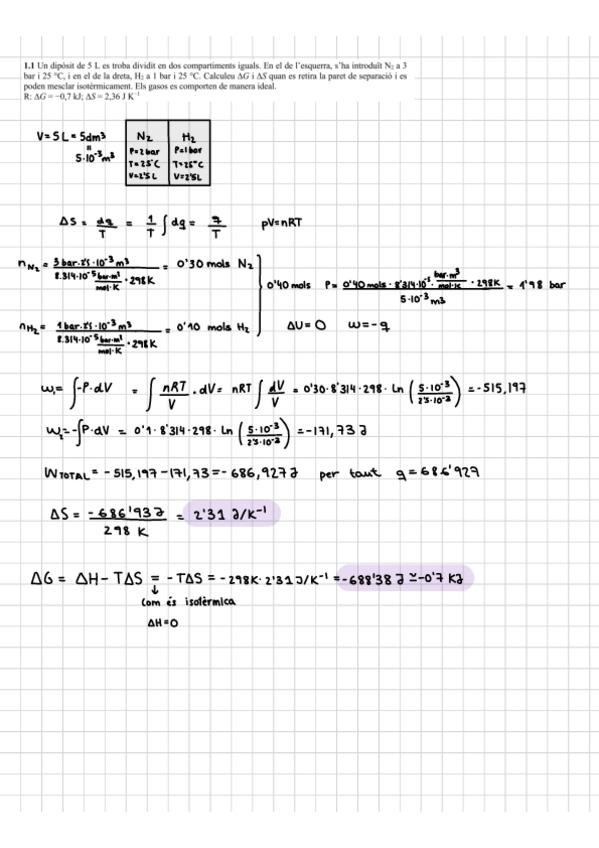 1.1 Un dipòsit de 5 L es troba dividit en dos compartiments iguals. En el de l'esquerra, s'ha introduït N₂ a 3
bar i 25 °C, i en el de la dreta, H₂ a 1 bar i 25 °C. Calculeu ΔG i ΔS quan es retira la paret de separació i es
poden mesclar isotèrmicament. Els gasos es comporten de manera ideal.
R: ΔG = −0,7 kJ; ΔS = 2,36 J K⁻¹
V = 5L = 5dm³
=
5·10⁻³ m³
N₂
P=2bar
T=25°C
V=2'5L
H₂
P=1bar
T=25°C
V=2'5L
ΔS = dq/T = 1/T ∫dq = q/T pV=nRT
n N₂ = 3 bar·2'5·10⁻³ m³ / 8.314·10⁻⁵ bar·m³/mol·K · 298K = 0'30 mols N₂
0'40 mols P = 0'40 mols · 8'314·10⁻⁵ · bar·m³/mol·K · 298K / 5·10⁻³ m³ = 1'98 bar
n H₂ = 1 bar·2'5·10⁻³ m³ / 8.314·10⁻⁵ bar·m³/mol·K · 298K = 0'10 mols H₂
ΔU = 0 w = -q
w₁ = ∫-P·dV = ∫ nRT/V · dV = nRT ∫ dV/V = 0'30·8'314·298· Ln (5·10⁻³/2'5·10⁻³) = -515,197
w₂ = -∫P·dV = 0'1·8'314·298· Ln (5·10⁻³/2'5·10⁻³) = -171,73 J
W TOTAL = -515,197 -171,73 = -686,927 J per tant q = 686'927
ΔS = -686'93 J / 298 K = 2'31 J/K⁻¹
ΔG = ΔH - TΔS = -TΔS = -298K · 2'31 J/K⁻¹ = -688'38 J ≃ -0'7 KJ
↓
Com és isotèrmica
ΔH=0